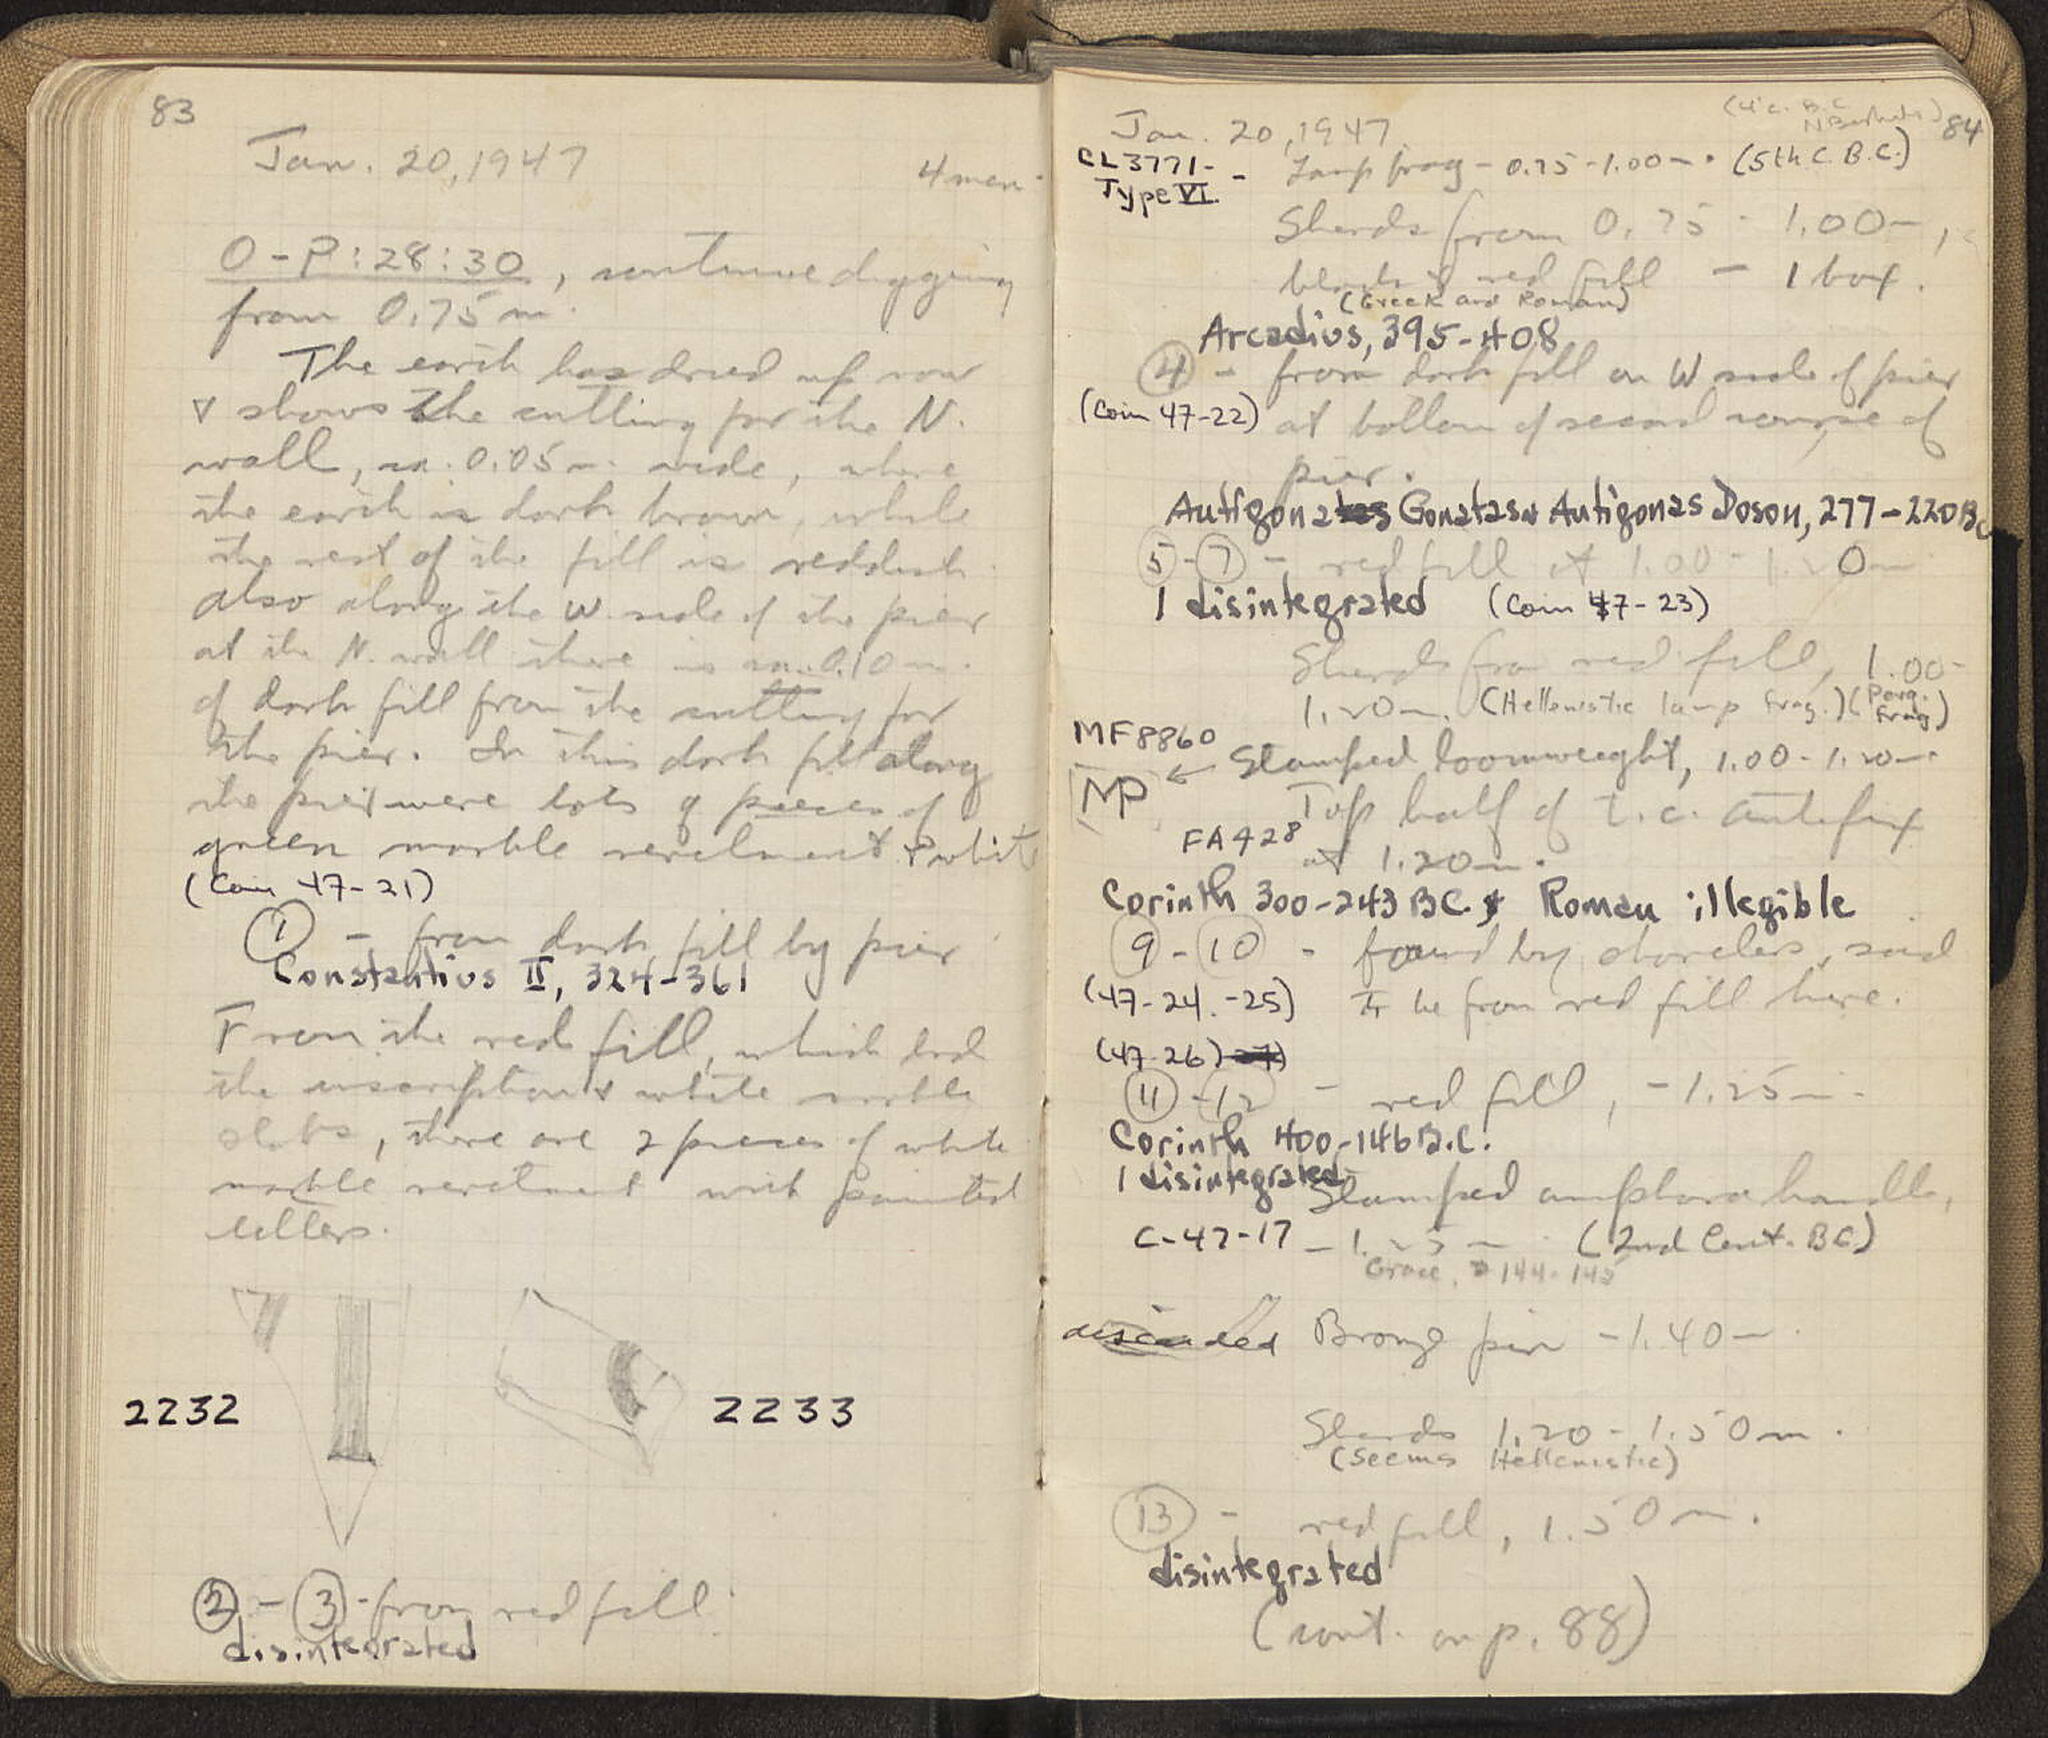 83
Jan. 20, 1947
4 men
O-P:28:30, continue digging
from 0.75 m.
The earth has dried up now
& shows the cutting for the N.
wall, ca. 0.05 m. wide, where
the earth is dark brown, while
the rest of the fill is reddish.
Also along the W. side of the pier
at the N. wall there is ca. 0.10 m.
of dark fill from the cutting for
the pier. In this dark fill along
the pier were lots of pieces of
green marble revetment & white
(Coin 47-21)
1 - from dark fill by pier
Constantius II, 324-361
From the red fill, which had
the inscription & white marble
slabs, there are 2 pieces of white
marble revetment with painted
letters.
2232
2233
2 - 3 - from red fill.
disintegrated
(4th c. B.C.
84
Jan. 20, 1947
CL 3771 -
Type VI. - Lamp frag - 0.75-1.00 m. (5th C. B.C.)
Sherds from 0.75 - 1.00 m,
black & red fill - 1 box.
(Greek and Roman)
Arcadius, 395-408
4 - from dark fill on W side of pier
(Coin 47-22) at bottom of second course of
pier.
Antigonas Gonatas & Antigonas Doson, 277-220 BC
5 - 7 - red fill at 1.00 - 1.20 m
1 disintegrated (Coin 47-23)
Sherds from red fill, 1.00-
1.20 m. (Hellenistic lamp frag.) (Perg. frag)
MF 8860
NP ← Stamped loomweight, 1.00-1.20 m.
Top half of t.c. antefix
FA 428 at 1.20 m.
Corinth 300-243 BC. & Roman illegible
9 - 10 - found by shovelers, said
(47-24. -25) to be from red fill here.
(47-26)
11 - 12 - red fill, -1.25 m.
Corinth 400-146 B.C.
1 disintegrated
Stamped amphora handle,
C-47-17 - 1.25 m. (2nd Cent. BC)
Grace, 144-145
discarded Bronze pin -1.40 m.
Sherds 1.20 - 1.50 m.
(Seems Hellenistic)
13 - red fill, 1.50 m.
disintegrated
(cont. on p. 88)